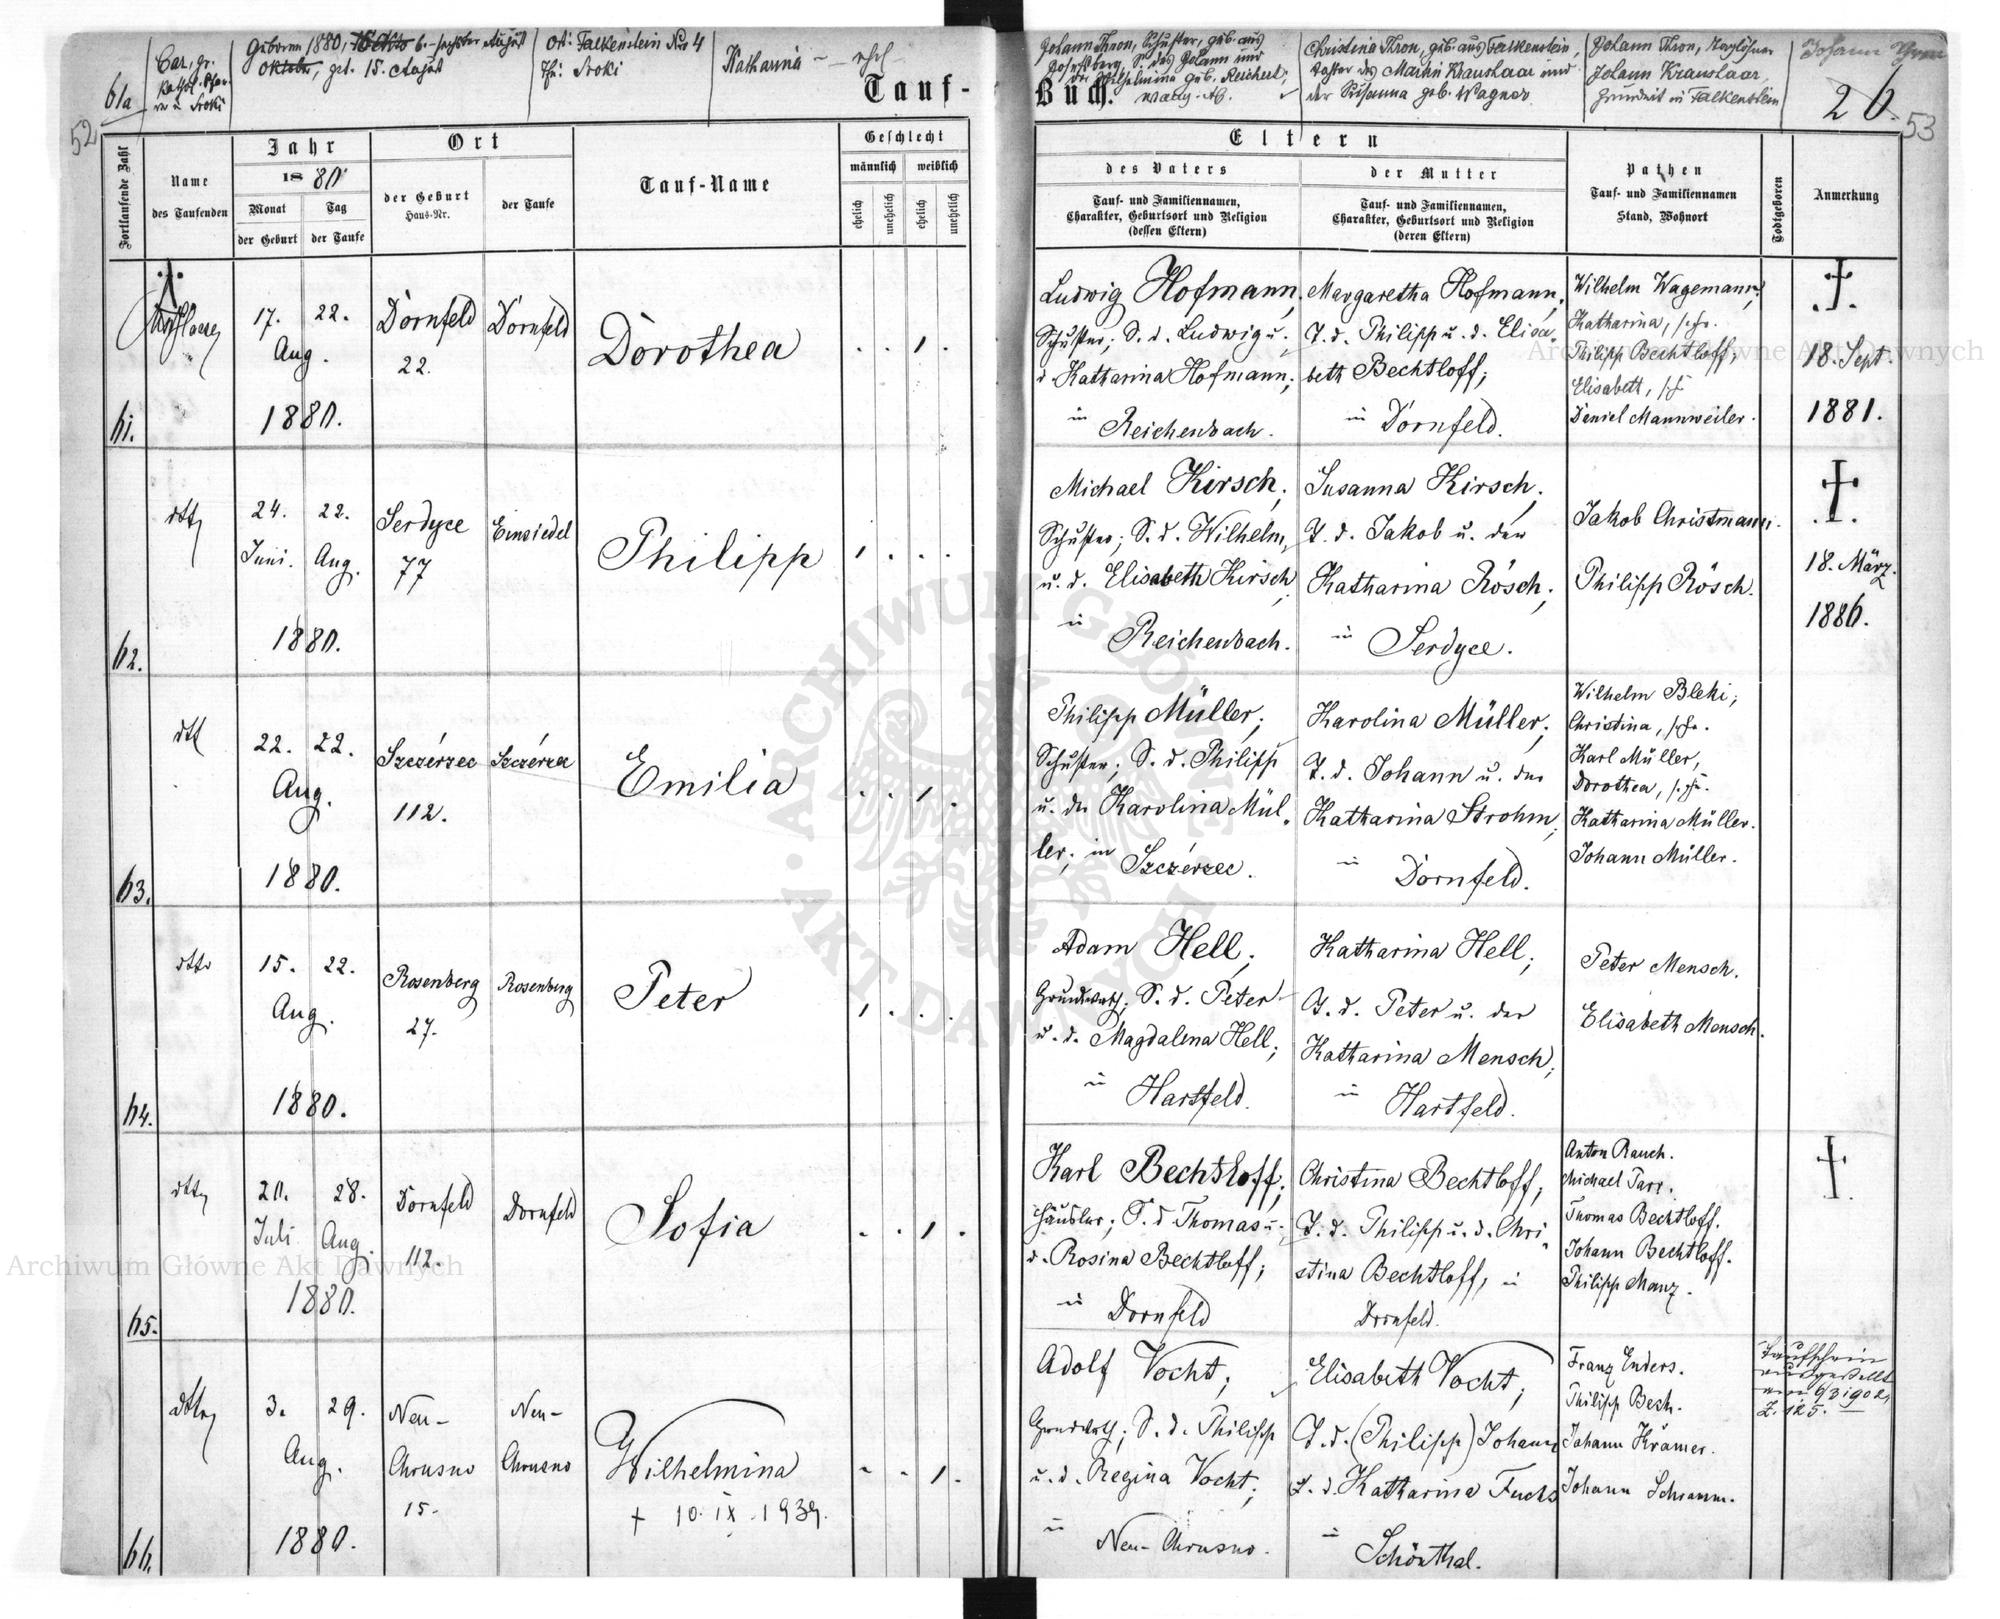 61a
Car. gr.
kathol. Pfar-
re in Sroki
Geboren 1880, 6. sechster August
Oktober, get. 15. August
Ort: Falkenstein Nro 4
Sroki
Katharina — ehel.
Tauf-
52
Johann Thron, Schuster, geb. aus
Josefsberg, S. des Johann und
der Wilhelmina geb. Reichert,
evang. AB.
Buch.
Christina Thron, geb. aus Falkenstein,
Tochter des Martin Kraushaar und
der Susanna geb. Wagner
Johann Thron,
Johann Kraushaar,
Grundwirt in Falkenstein
Johann Thron
26.
53
Fortlaufende Zahl
Name
des Taufenden
Jahr
18 80
Monat
der Geburt
Tag
der Taufe
Ort
der Geburt
Haus-Nr.
der Taufe
Tauf-Name
Geschlecht
männlich
weiblich
ehelich
unehelich
ehelich
unehelich
Eltern
des Vaters
Tauf- und Familiennamen,
Charakter, Geburtsort und Religion
(dessen Eltern)
der Mutter
Tauf- und Familiennamen,
Charakter, Geburtsort und Religion
(deren Eltern)
Pathen
Tauf- und Familiennamen
Stand, Wohnort
Todtgeboren
Anmerkung
61.
17. 22.
Aug.
1880.
Dornfeld
22.
Dornfeld
Dorothea
Ludwig Hofmann,
Schuster; S. d. Ludwig u.
d. Katharina Hofmann;
in
Reichenbach.
Margaretha Hofmann,
T. d. Philipp u. d. Elisa-
beth Bechtloff;
in
Dornfeld.
Wilhelm Wagemann,
Katharina,
Philipp Bechtloff,
Elisabett,
Daniel Mannweiler.
18. Sept.
1881.
62.
dtto
24. 22.
Juni. Aug.
1880.
Serdyce
77
Einsiedel
Philipp
Michael Kirsch,
Schuster; S. d. Wilhelm
u. d. Elisabeth Kirsch
in
Reichenbach.
Susanna Kirsch,
T. d. Jakob u. der
Katharina Rösch;
in
Serdyce.
Jakob Christmann.
Philipp Rösch.
18. März
1886.
63.
dtto
22. 22.
Aug.
1880.
Szczérzec
112.
Szczérzec
Emilia
Philipp Müller;
Schuster; S. d. Philipp
u. der Karolina Mül-
ler; in
Szczérzec.
Karolina Müller;
T. d. Johann u. der
Katharina Strohm,
in
Dornfeld.
Wilhelm Bleki;
Christina,
Karl Müller,
Dorothea,
Katharina Müller.
Johann Müller.
64.
dtto
15. 22.
Aug.
1880.
Rosenberg
27.
Rosenberg
Peter
Adam Hell;
Grundwirth; S. d. Peter
u. d. Magdalena Hell;
in
Hartfeld.
Katharina Hell;
T. d. Peter u. der
Katharina Mensch;
in
Hartfeld.
Peter Mensch.
Elisabeth Mensch.
65.
dtto
20. 28.
Juli Aug.
1880.
Dornfeld
112.
Dornfeld
Sofia
Karl Bechtloff;
Häusler; S. d Thomas u.
d. Rosina Bechtloff;
in
Dornfeld
Christina Bechtloff;
T. d. Philipp u. d. Chri-
stina Bechtloff, in
Dornfeld.
Anton Rauch.
Michael Parr.
Thomas Bechtloff.
Johann Bechtloff.
Philipp Manz.
66.
dtto
3. 29.
Aug.
1880.
Neu-
Chrusno
15.
Neu-
Chrusno
Wilhelmina
+ 10. IX. 1939.
Adolf Vocht;
Grundwirth; S. d. Philipp
u. d. Regina Vocht;
in
Neu-Chrusno.
Elisabeth Vocht;
T. d. (Philipp) Johann
u. d. Katharina Fuchs
in
Schönthal.
Franz Enders.
Philipp Besh.
Johann Krämer.
Johann Schramm.
Taufschein
ausgestellt
am 6/3 1902,
Z. 125.
Archiwum Główne Akt Dawnych
Archiwum Główne Akt Dawnych
ARCHIWUM GŁÓWNE AKT DAWNYCH